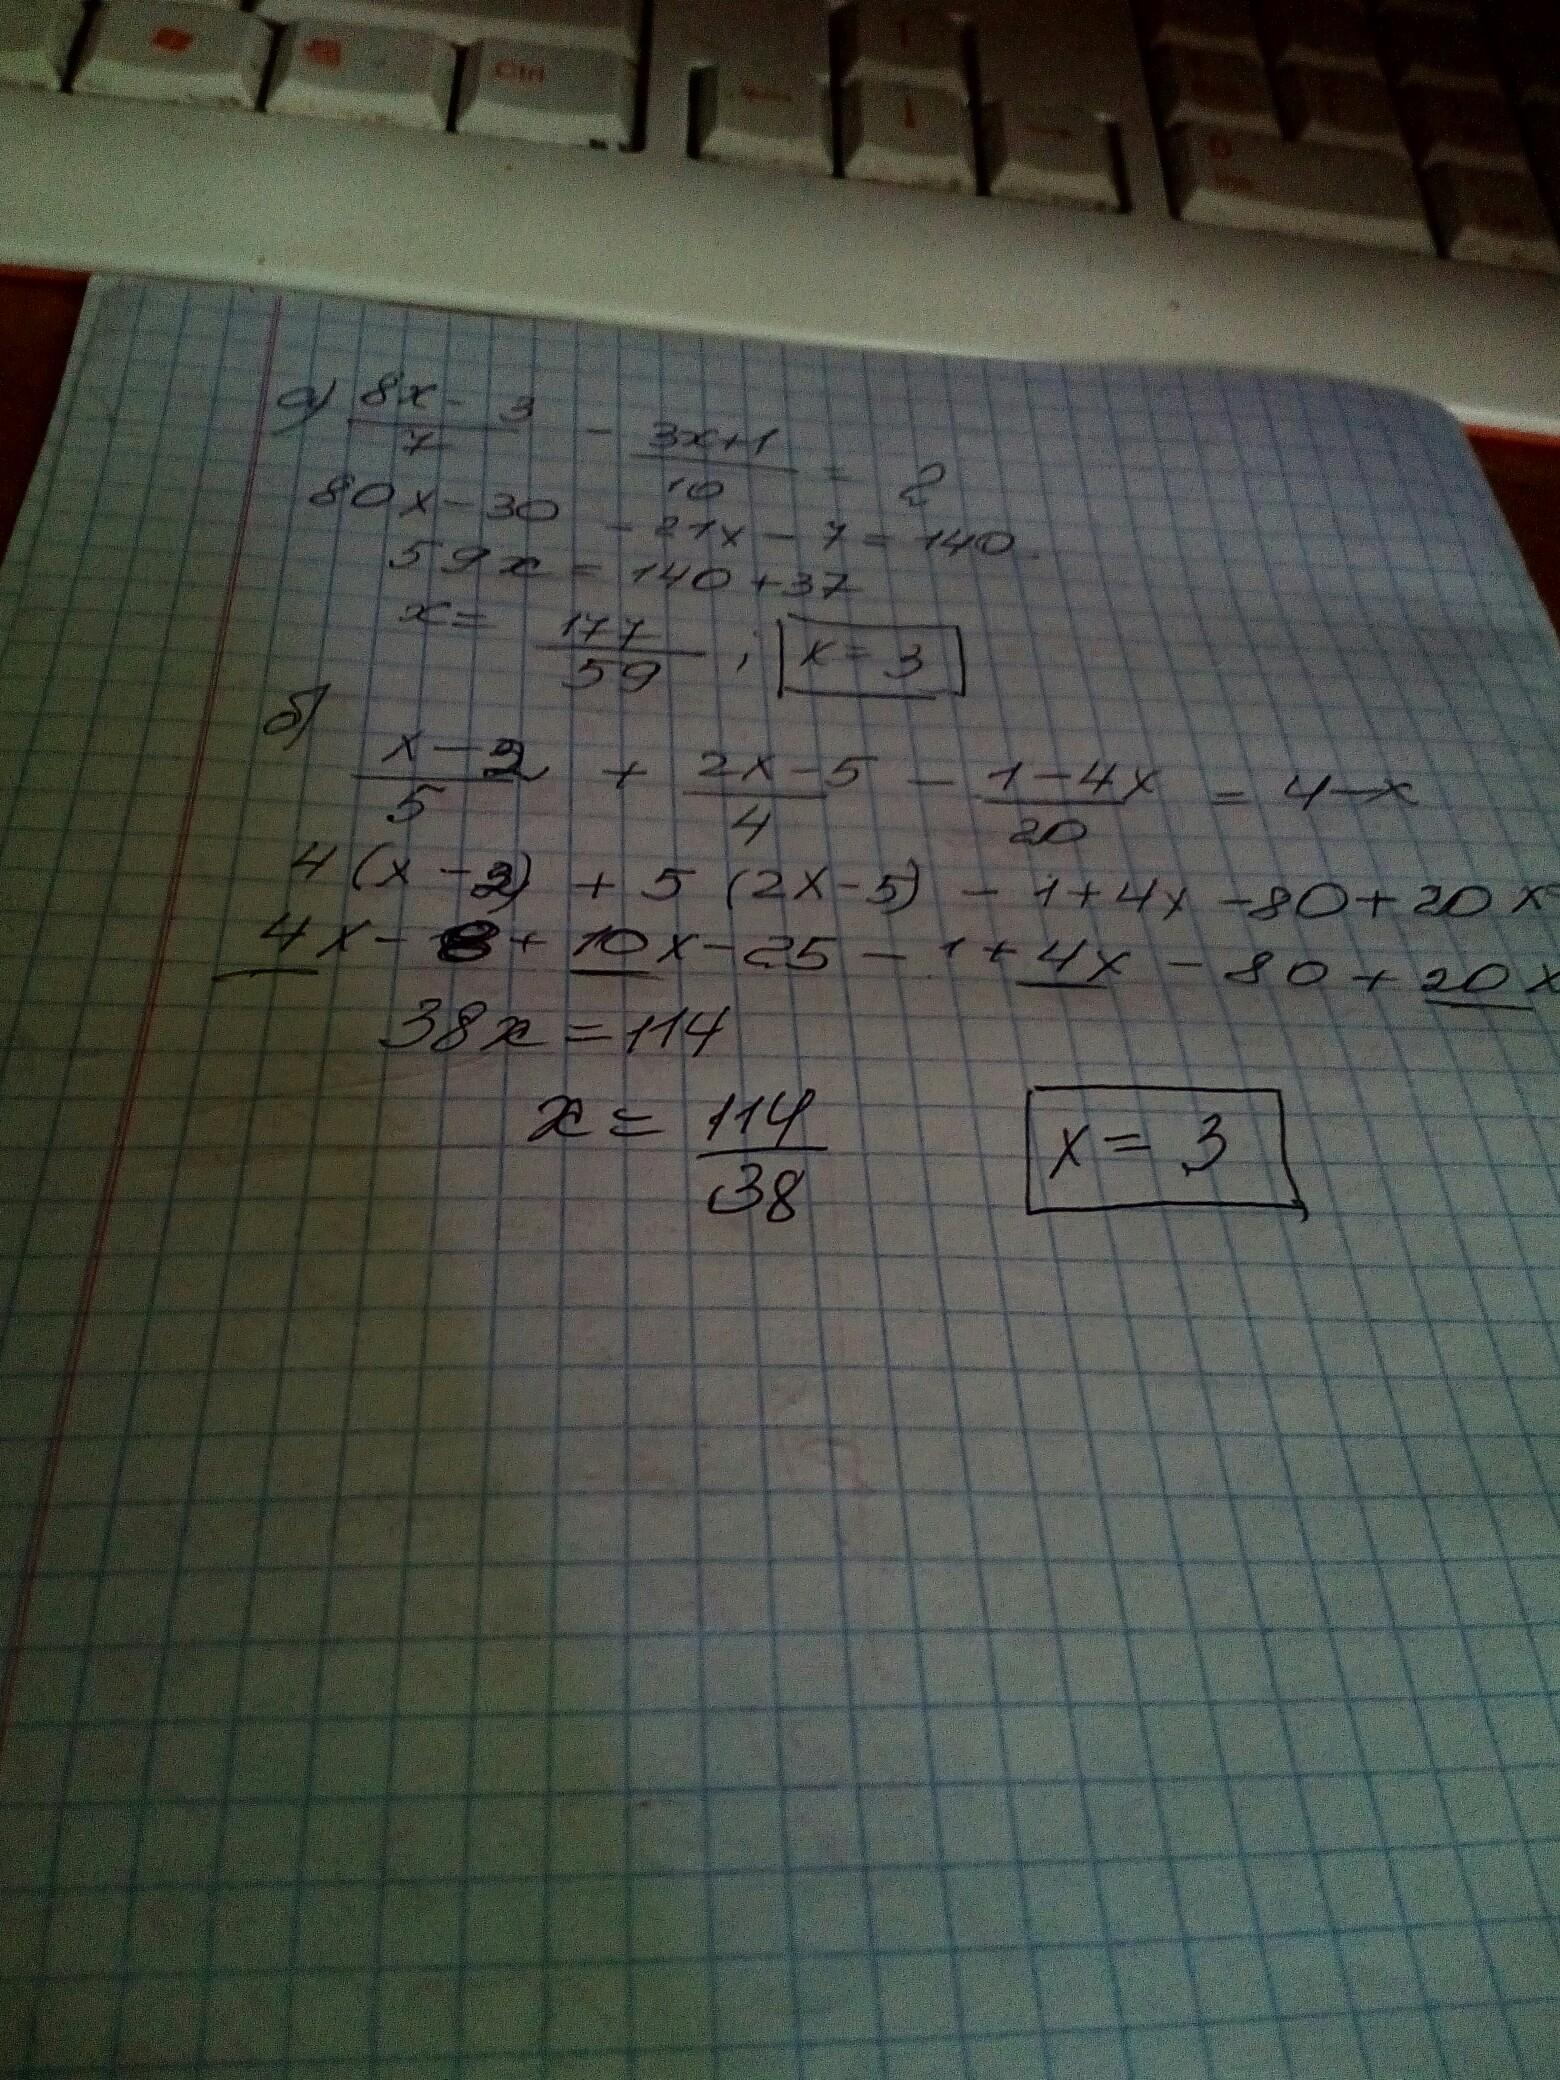 Ctrl
а) \frac{8x-3}{7} - \frac{3x+1}{10} = 2
80x-30 - 21x - 7 = 140.
59x = 140+37
x = \frac{177}{59} ; x = 3
б)
\frac{x-2}{5} + \frac{2x-5}{4} - \frac{1-4x}{20} = 4-x
4(x-2) + 5(2x-5) - 1+4x -80+20x
4x - 8 + 10x - 25 - 1 + 4x - 80 + 20x
38x = 114
x = \frac{114}{38} x = 3